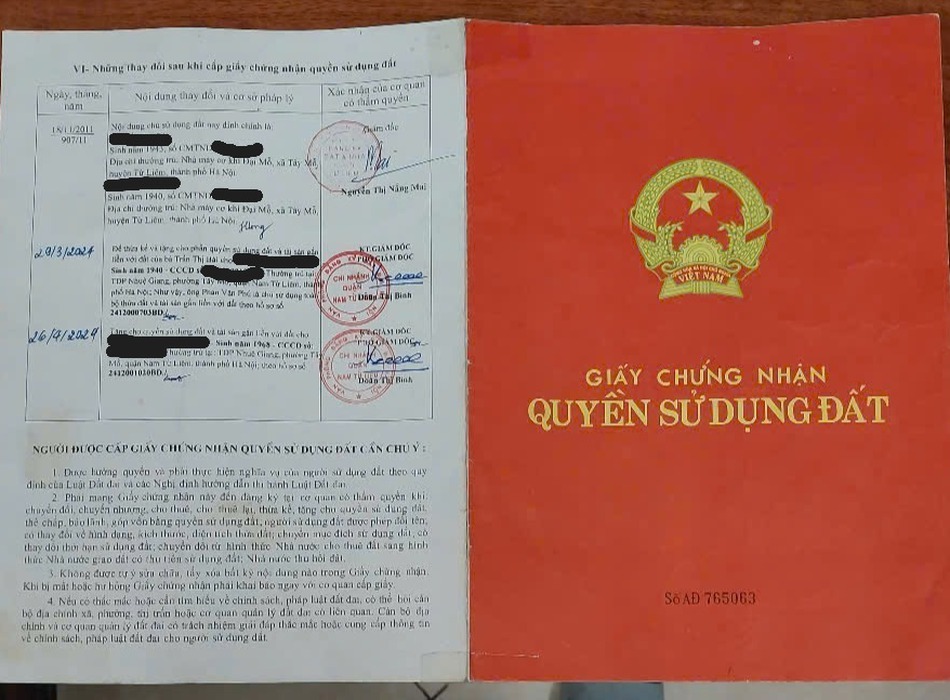 VI- Những thay đổi sau khi cấp giấy chứng nhận quyền sử dụng đất
Ngày, tháng, năm
Nội dung thay đổi và cơ sở pháp lý
Xác nhận của cơ quan có thẩm quyền
18/11/2011
907/11
Nội dung chủ sử dụng đất nay đính chính là
Sinh năm 1943, số CMTND:
Địa chỉ thường trú: Nhà máy cơ khí Đại Mỗ, xã Tây Mỗ,
huyện Từ Liêm, thành phố Hà Nội.
Sinh năm 1940, số CMTND:
Địa chỉ thường trú: Nhà máy cơ khí Đại Mỗ, xã Tây Mỗ,
huyện Từ Liêm, thành phố Hà Nội.
Giám đốc
Nguyễn Thị Năng Mai
29/3/2024
Để thừa kế và tặng cho phần quyền sử dụng đất và tài sản gắn
liền với đất của bà Trần Thị
Sinh năm 1940 - CCCD số
Thường trú tại:
TDP Nhuệ Giang, phường Tây Mỗ, quận Nam Từ Liêm, thành
phố Hà Nội; Như vậy, ông Phan Văn Phú là chủ sử dụng toàn
bộ thửa đất và tài sản gắn liền với đất theo hồ sơ số
2412000703BD
KT.GIÁM ĐỐC
PHÓ GIÁM ĐỐC
CHI NHÁNH
QUẬN
NAM TỪ LIÊM
Doãn Thị Bình
26/4/2024
Tặng cho quyền sử dụng đất và tài sản gắn liền với đất cho
Sinh năm 1968 - CCCD số:
Thường trú tại: TDP Nhuệ Giang, phường Tây
Mỗ, quận Nam Từ Liêm, thành phố Hà Nội; theo hồ sơ số
2412001020BD
KT.GIÁM ĐỐC
PHÓ GIÁM ĐỐC
CHI NHÁNH
QUẬN
NAM TỪ LIÊM
Doãn Thị Bình
NGƯỜI ĐƯỢC CẤP GIẤY CHỨNG NHẬN QUYỀN SỬ DỤNG ĐẤT CẦN CHÚ Ý :
1. Được hưởng quyền và phải thực hiện nghĩa vụ của người sử dụng đất theo quy
định của Luật Đất đai và các Nghị định hướng dẫn thi hành Luật Đất đai.
2. Phải mang Giấy chứng nhận này đến đăng ký tại cơ quan có thẩm quyền khi:
chuyển đổi, chuyển nhượng, cho thuê, cho thuê lại, thừa kế, tặng cho quyền sử dụng đất,
thế chấp, bảo lãnh, góp vốn bằng quyền sử dụng đất; người sử dụng đất được phép đổi tên;
có thay đổi về hình dạng, kích thước, diện tích thửa đất; chuyển mục đích sử dụng đất; có
thay đổi thời hạn sử dụng đất; chuyển đổi từ hình thức Nhà nước cho thuê đất sang hình
thức Nhà nước giao đất có thu tiền sử dụng đất; Nhà nước thu hồi đất.
3. Không được tự ý sửa chữa, tẩy xóa bất kỳ nội dung nào trong Giấy chứng nhận.
Khi bị mất hoặc hư hỏng Giấy chứng nhận phải khai báo ngay với cơ quan cấp giấy.
4. Nếu có thắc mắc hoặc cần tìm hiểu về chính sách, pháp luật đất đai, có thể hỏi cán
bộ địa chính xã, phường, thị trấn hoặc cơ quan quản lý đất đai có liên quan. Cán bộ địa
chính và cơ quan quản lý đất đai có trách nhiệm giải đáp thắc mắc hoặc cung cấp thông tin
về chính sách, pháp luật đất đai cho người sử dụng đất.
VIỆT NAM
GIẤY CHỨNG NHẬN
QUYỀN SỬ DỤNG ĐẤT
Số AĐ 765063